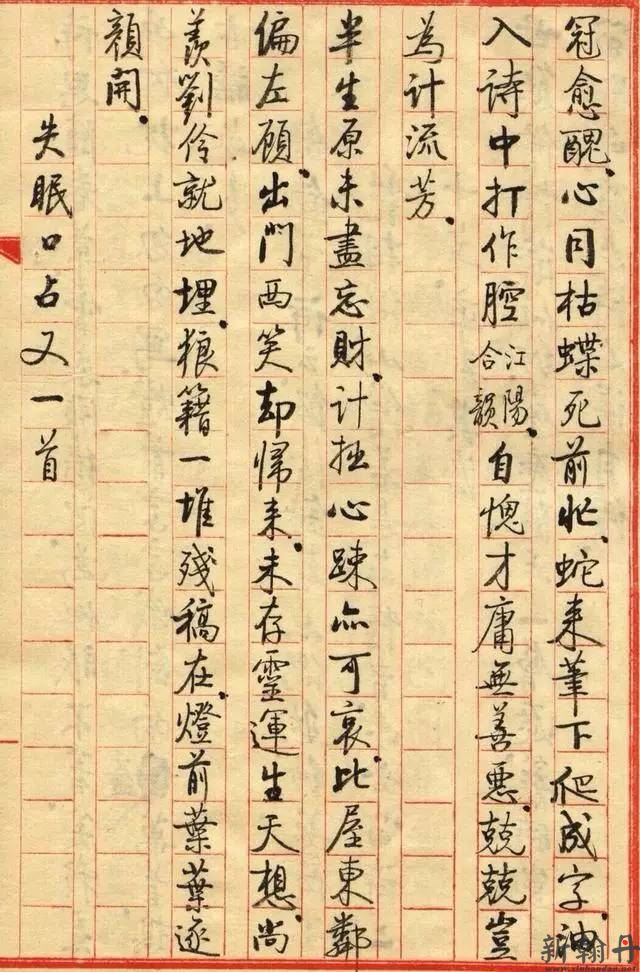 冠愈醜心同枯蝶死前忙蛇来筆下爬成字油
入詩中打作腔江陽合韻自愧才庸無善惡兢兢豈
為計流芳
半生原未盡忘財計拙心疎亦可哀比屋東鄰
偏左顧出門西笑却歸来未存靈運生天想尚
羨劉伶就地埋狼籍一堆殘稿在燈前葉葉逐
顏開
失眠口占又一首
新翰丹